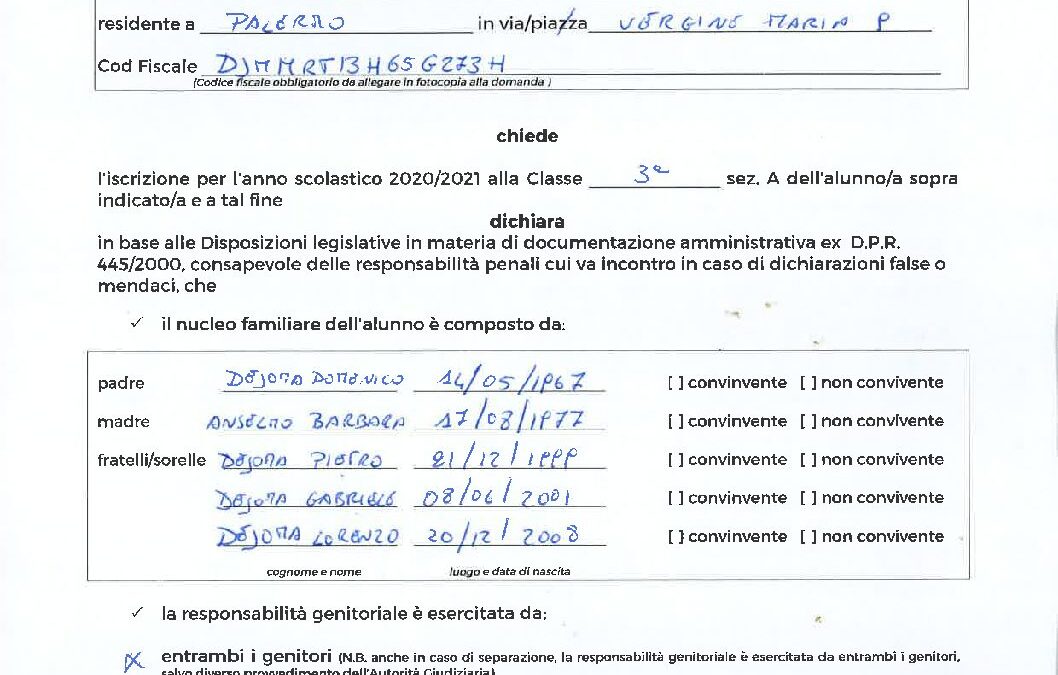 residente a PALERMO in via/piazza VERGINE MARIA 9
Cod Fiscale DJMMRT13H65G273H
(Codice fiscale obbligatorio da allegare in fotocopia alla domanda )
chiede
l'iscrizione per l'anno scolastico 2020/2021 alla Classe 3a sez. A dell'alunno/a sopra
indicato/a e a tal fine
dichiara
in base alle Disposizioni legislative in materia di documentazione amministrativa ex D.P.R.
445/2000, consapevole delle responsabilità penali cui va incontro in caso di dichiarazioni false o
mendaci, che
✓ il nucleo familiare dell'alunno è composto da:
padre DEJOMA DOMENICO 14/05/1967 [ ] convinvente [ ] non convivente
madre ANSELMO BARBARA 17/08/1977 [ ] convinvente [ ] non convivente
fratelli/sorelle DEJOMA PIETRO 21/12/1999 [ ] convinvente [ ] non convivente
DEJOMA GABRIELE 08/06/2001 [ ] convinvente [ ] non convivente
DEJOMA LORENZO 20/12/2008 [ ] convinvente [ ] non convivente
cognome e nome luogo e data di nascita
✓ la responsabilità genitoriale è esercitata da:
X entrambi i genitori (N.B. anche in caso di separazione, la responsabilità genitoriale è esercitata da entrambi i genitori,
salvo diverso provvedimento dell'Autorità Giudiziaria)